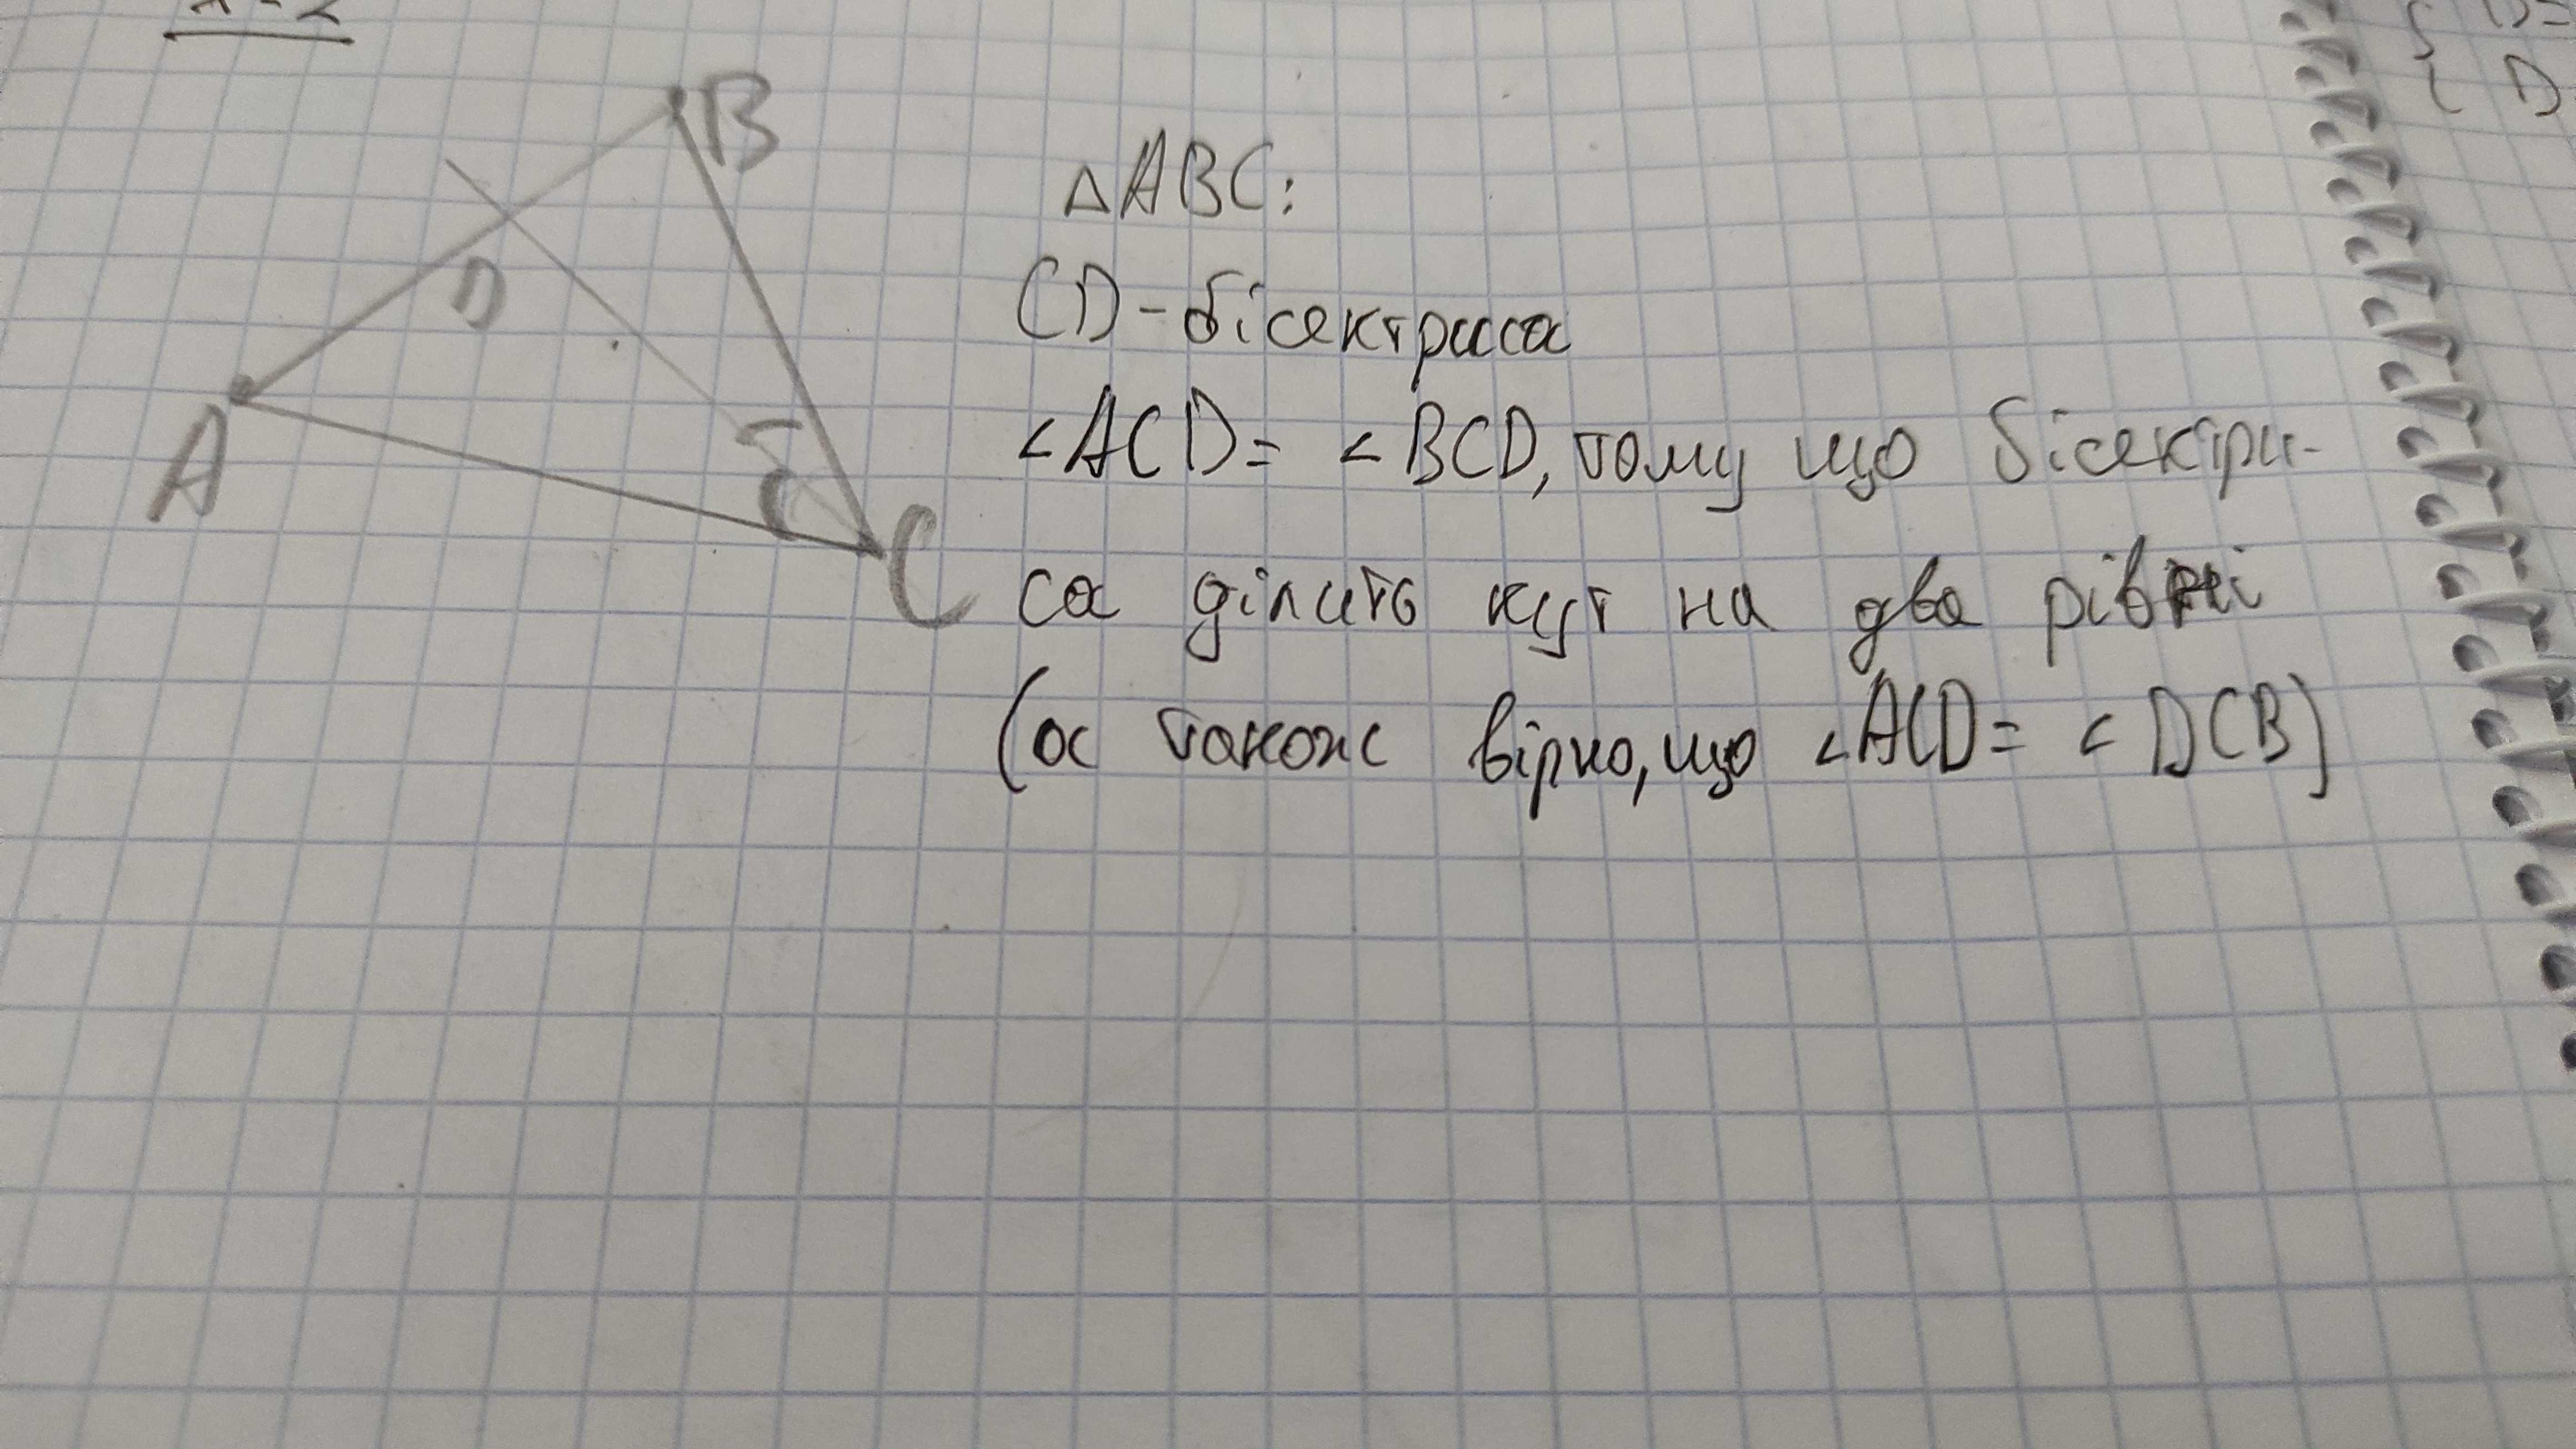 B
D
A
C
△ABC:
CD-бісектриса
∠ACD= ∠BCD, тому що бісектри-
са ділить кут на два рівні
(а також вірно, що ∠ACD= ∠DCB)